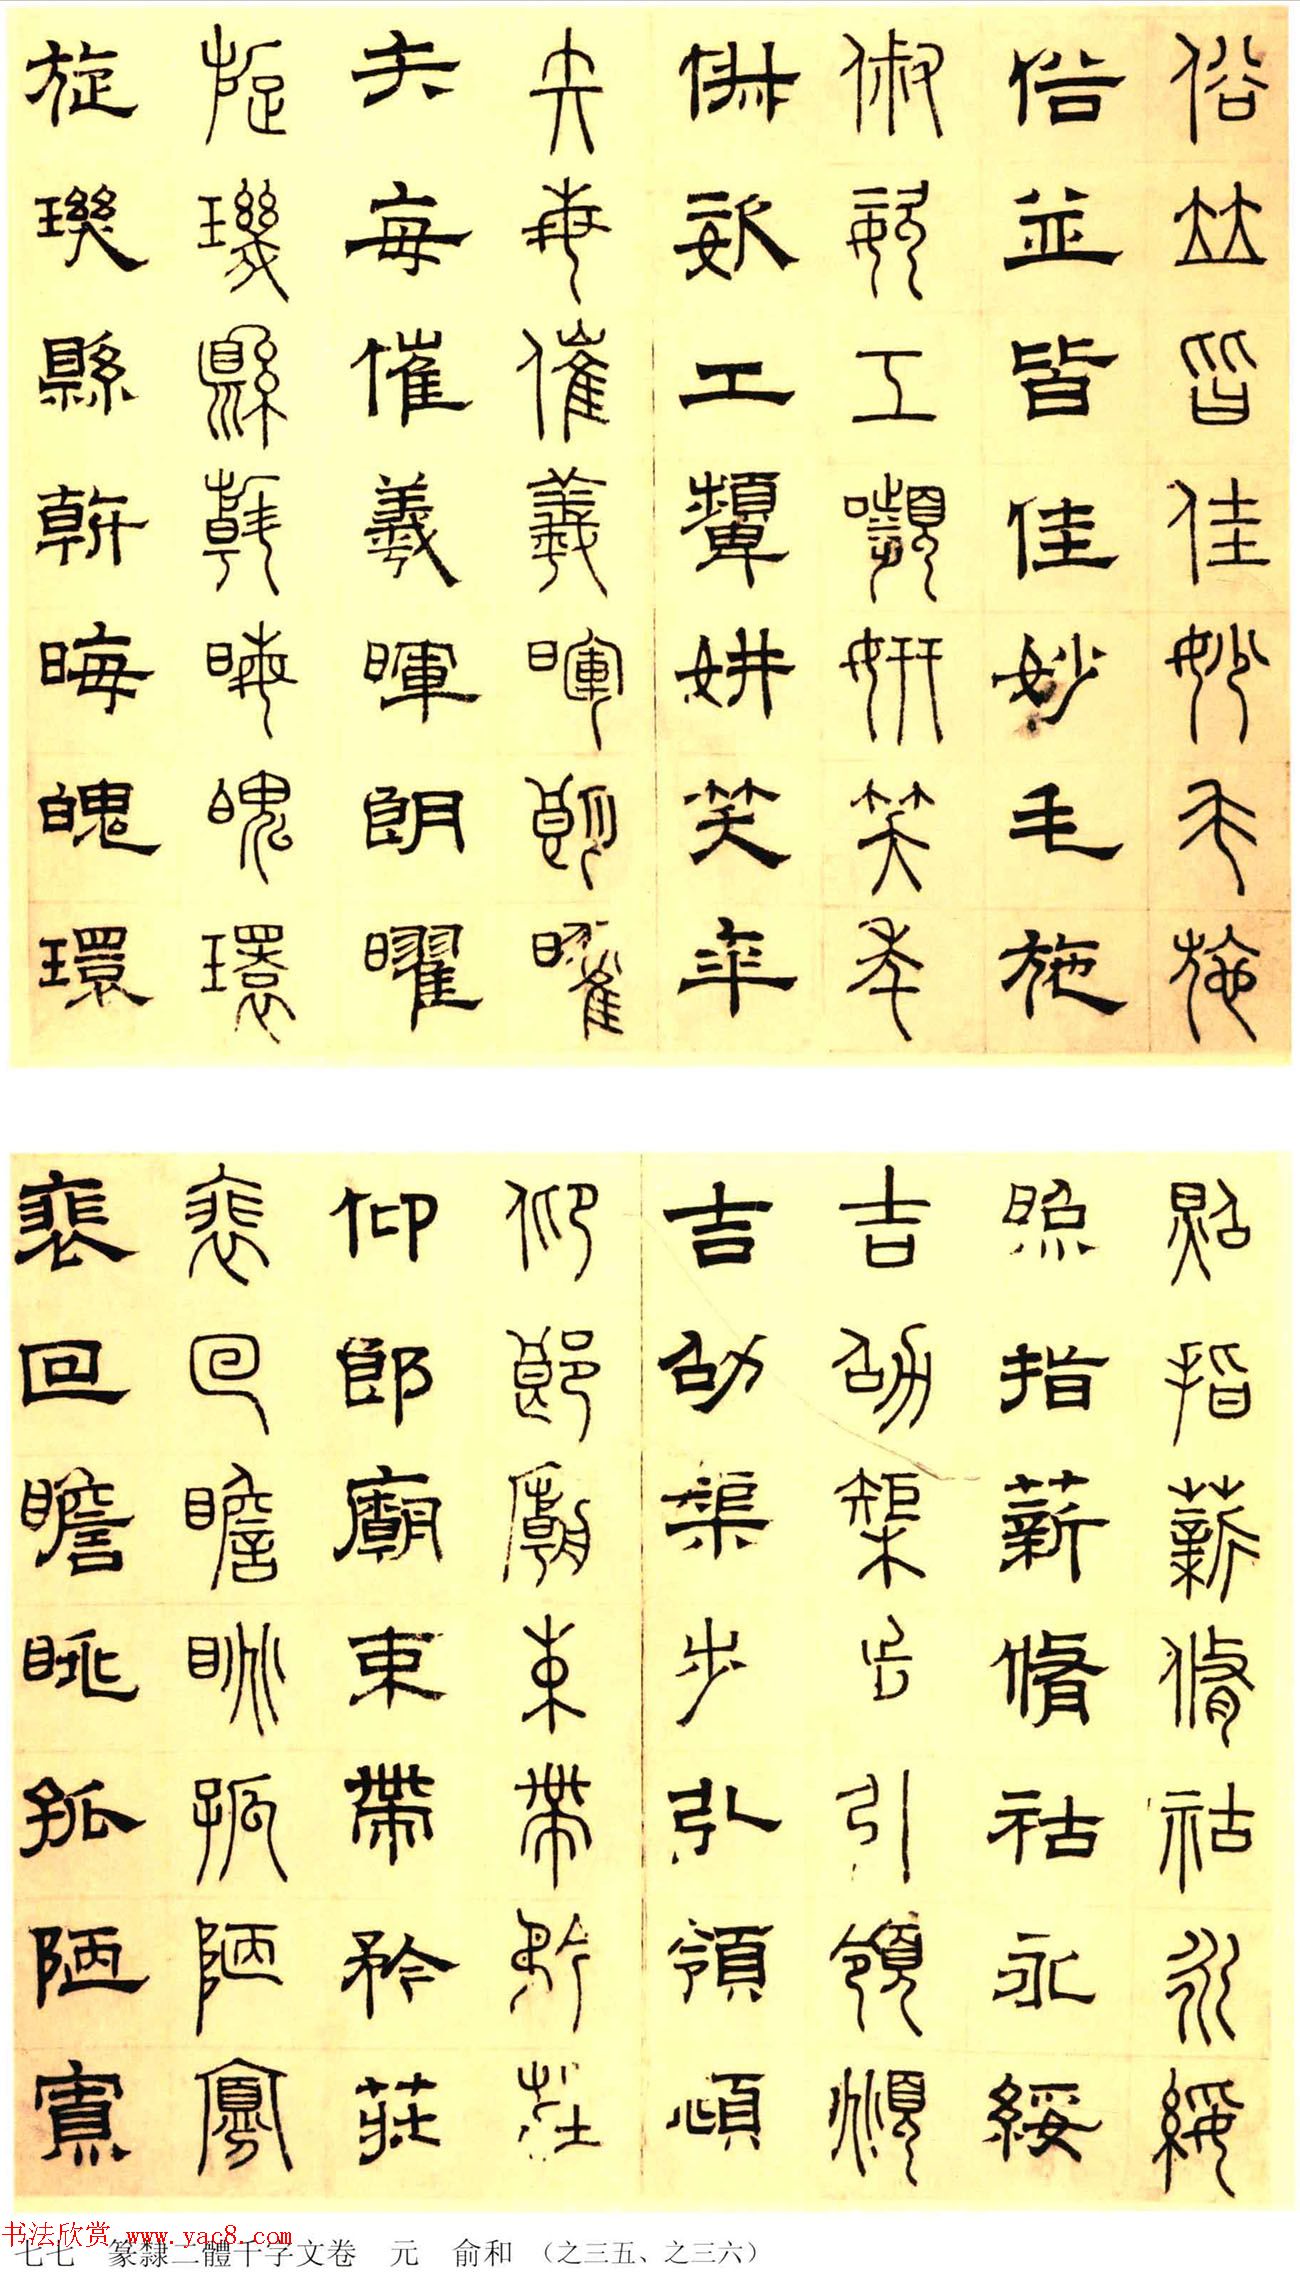 俗竝皆佳妙毛施
俗並皆佳妙毛施
俶姿工顰妍笑年
俶姿工顰妍笑年
矢每催羲暉朗曜
矢每催羲暉朗曜
旋璣縣斡晦魄環
旋璣縣斡晦魄環
照指薪脩祜永綏
照指薪脩祜永綏
吉劭榘步引領頫
吉劭榘步引領頫
仰郎廟束帶矜莊
仰郎廟束帶矜莊
裵回瞻眺孤陋寡
裵回瞻眺孤陋寡
书法欣赏 www.yac8.com
七七 篆隸二體千字文卷 元 俞和 （之三五、之三六）